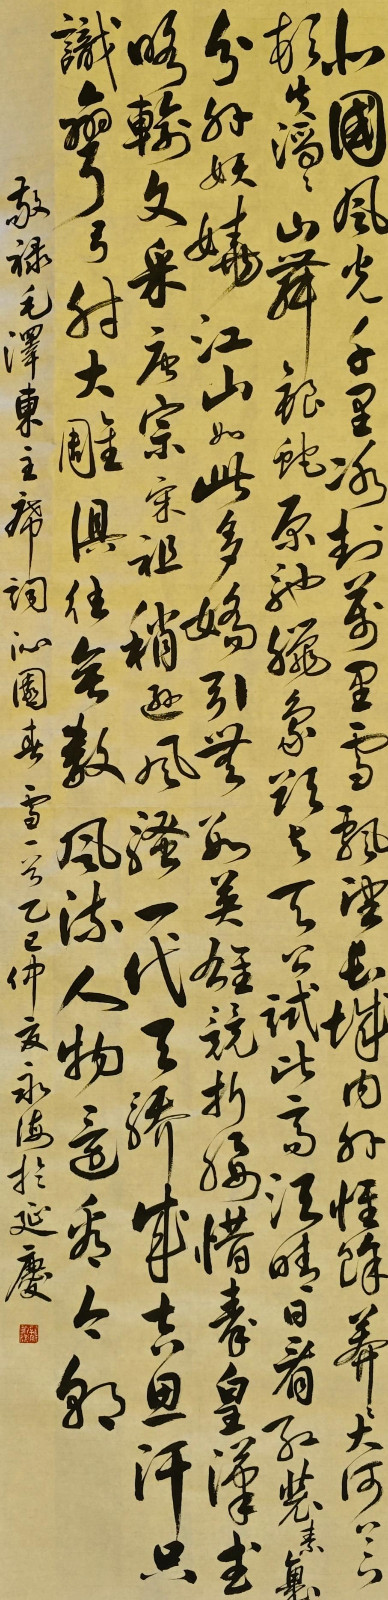 北國風光千里冰封萬里雪飄望長城内外惟餘莽々大河上下
頓失滔々山舞銀蛇原馳臘象欲与天公試比高須晴日看紅裝素裹
分外妖嬈江山如此多嬌引無數英雄競折腰惜秦皇漢武
略輸文采唐宗宋祖稍遜風騷一代天驕成吉思汗只
識彎弓射大雕俱往矣數風流人物還看今朝
敬禄毛澤東主席詞沁園春雪一首乙巳仲夏永海於延慶